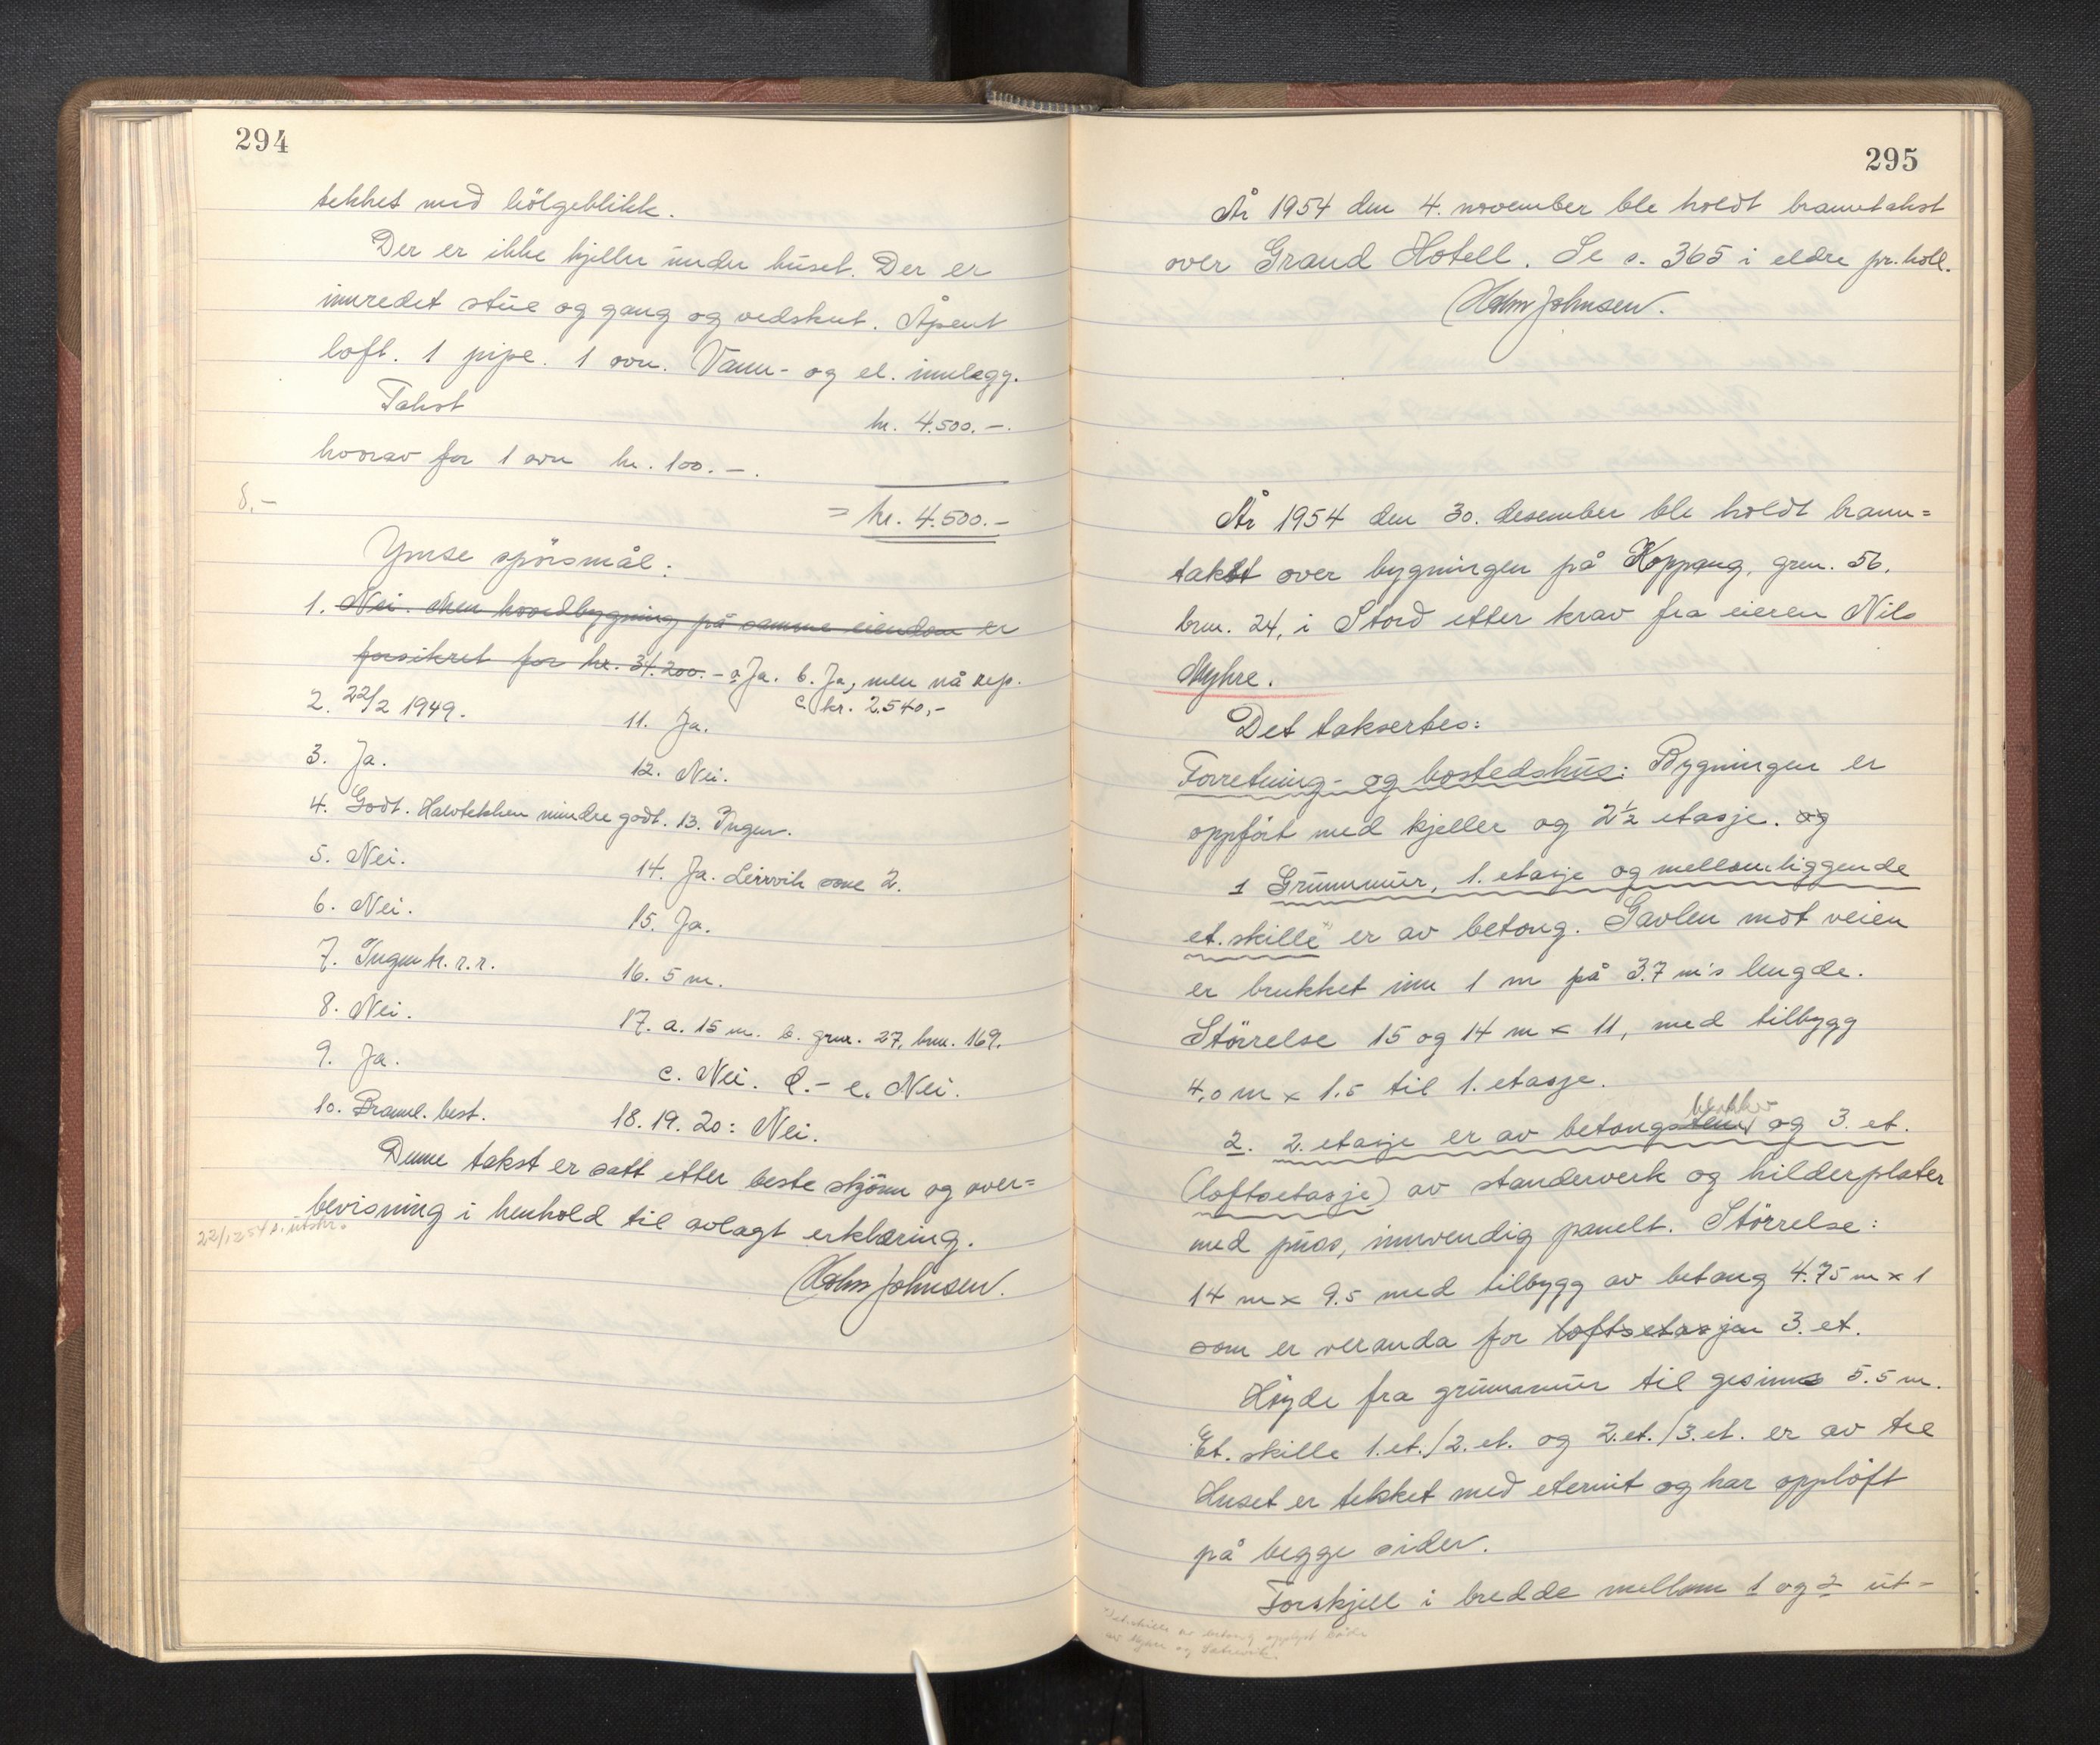 294
tekket med bölgeblikk.
Der er ikke kjeller under huset. Der er
innredet stue og gang og vedskut. Åpent
loft. 1 pipe. 1 ovn. Vann- og el. innlegg.
Takst kr. 4.500.-.
hvorav for 1 ovn kr. 100.-.
8,-
= kr. 4.500.-
Ymse spörsmål:
1. Nei. Men hovedbygning på samme eiendom er
forsikret for kr. 31.200.- a Ja. b. Ja, men nå rep.
c. kr. 2.540,-
2. 22/2 1949. 11. Ja.
3. Ja. 12. Nei.
4. Godt. Halvtekken mindre godt. 13. Ingen.
5. Nei. 14. Ja. Leirvik sone 2.
6. Nei. 15. Ja.
7. Ingen h.r.r. 16. 5 m.
8. Nei. 17. a. 15 m. b. gnr. 27, bnr. 169.
9. Ja. c. Nei. d.- e. Nei.
10. Brannl. best. 18. 19. 20: Nei.
Denne takst er satt etter beste skjönn og over=
bevisning i henhold til avlagt erklæring.
22/12 54 s. utskr.
Holm Johnsen.
295
År 1954 den 4. november ble holdt branntakst
over Grand Hotell. Se s. 365 i eldre pr.koll.
Holm Johnsen.
År 1954 den 30. desember ble holdt brann=
takst over bygningen på Koppang, gnr. 56,
bnr. 24, i Stord etter krav fra eieren Nils
Myhre.
Det takserbes:
Forretning- og bostedshus: Bygningen er
oppfört med kjeller og 2½ etasje. og
1 Grunnmur, 1. etasje og mellomliggende
et. skille" er av betong. Gavlen mot veien
er brukket inn 1 m på 3.7 m's lengde.
Störrelse 15 og 14 m x 11, med tilbygg
4,0 m x 1.5 til 1. etasje.
blokker
2. 2. etasje er av betongstein og 3. et.
(loftsetasje) av standerverk og hilderplater
med puss, innvendig panelt. Störrelse:
14 m x 9.5 med tilbygg av betong 4.75 m x 1
som er veranda for loftsetasjen 3. et.
Höyde fra grunnmur til gesims 5.5 m.
Et. skille 1.et./2.et. og 2.et./3.et. er av tre
Huset er tekket med eternit og har opplöft
på begge sider.
Forskjell i bredde mellom 1 og 2 ut-
"Et.skille av betong opplyst både
av Myhre og Sætrevik.